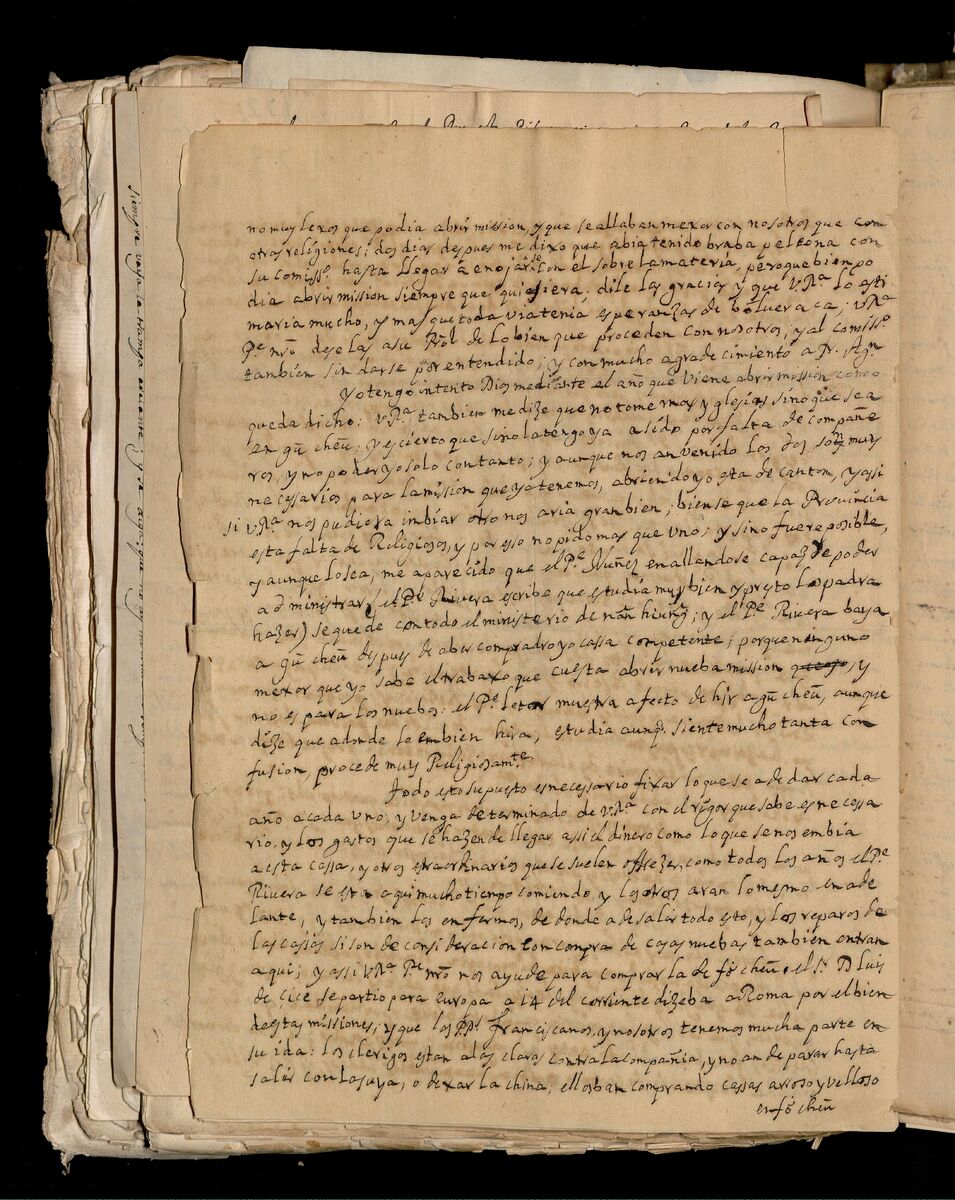 no muy lexos que podia abrir mission, y que se allaban mexor con nosotros que com
otras religiones; dos dias despues me dixo que abia tenido braba peleona con
su comissº. hasta llegar a enojarse con el sobre la materia, pero que bien po
dia abrir mission siempre que quisiera, dile las gracias y que VRª lo esti
maria mucho, y mas que toda via tenia esperanzas de bolver a ca; VRª
Pe nrõ deselas a su Pr̃l de lo bien que proceden con nosotros, y al comissº.
tambien sin darse por entendido; y con mucho agradecimiento a Fr. Agn.
Yo tengo intento Dios mediante el año que viene abrir mission como
queda dicho: VRª. tambien me dize que no tome mas yglesias sino que sea
en gũ cheũ; y es cierto que sino la tengo ya a sido por falta de compañe
ros, y no poder yo solo con tanto; y aunque nos an venido los dos son muy
necessarios para la mission que ya tenemos, abriendo yo esta de canton, y assi
si VRª nos pudiera imbiar otro nos aria gran bien; bien se que la Provincia
esta falta de Religiosos, y por esso no pido mas que uno; y sino fuere posible,
y aunque lo sea, me a parecido que el Pe. Nuñez en allandose capaz de poder
administrar (el Pe Rivera escribe que estudia muy bien y presto lo podra
hazer) se quede con todo el ministerio de nãn hiũng; y el Pe Rivera baya
a gũ cheũ despues de aber comprado yo cassa competente; porque ninguno
mexor que yo sabe el trabaxo que cuesta abrir nueba mission, y
no es para los nuebos: el Pe. Letor muestra afecto de hir a gũ cheũ, aunque
dize que adonde lo embien hira, estudia aunq. siente mucho tanta con
fusion, procede muy Religiosamte.
Todo esto supuesto es necessario fixar lo que se a de dar cada
año a cada uno, y venga determinado de VRª con el rigor que sabe es necessa
rio, y los gastos que se hazen de llegar assi el dinero como lo que se nos embia
a esta cassa, y otros estraordinarios que se suelen offrezer, como todos los años el Pe
Rivera se esta aqui mucho tiempo comiendo, y los otros aran lo mesmo en ade
lante, y tambien los enfermos, de donde a de salir todo esto, y los reparos de
las cassas si son de consideracion con compra de casas nuebas tambien entran
aqui; y assi VRª Pe nrõ nos ayude para comprar la de fõ cheũ. el Sr. D Luis
de Cice se partio para europa a 14 del corriente dize ba a Roma por el bien
destas missiones, y que los PPs. franciscanos, y nosotros tenemos mucha parte en
su ida: los clerigos estan a las claras contra la compañia, y no an de parar hasta
salir con la suya, o dexar la china; ellos ban comprando cassas a roso y velloso
en fõ cheũ